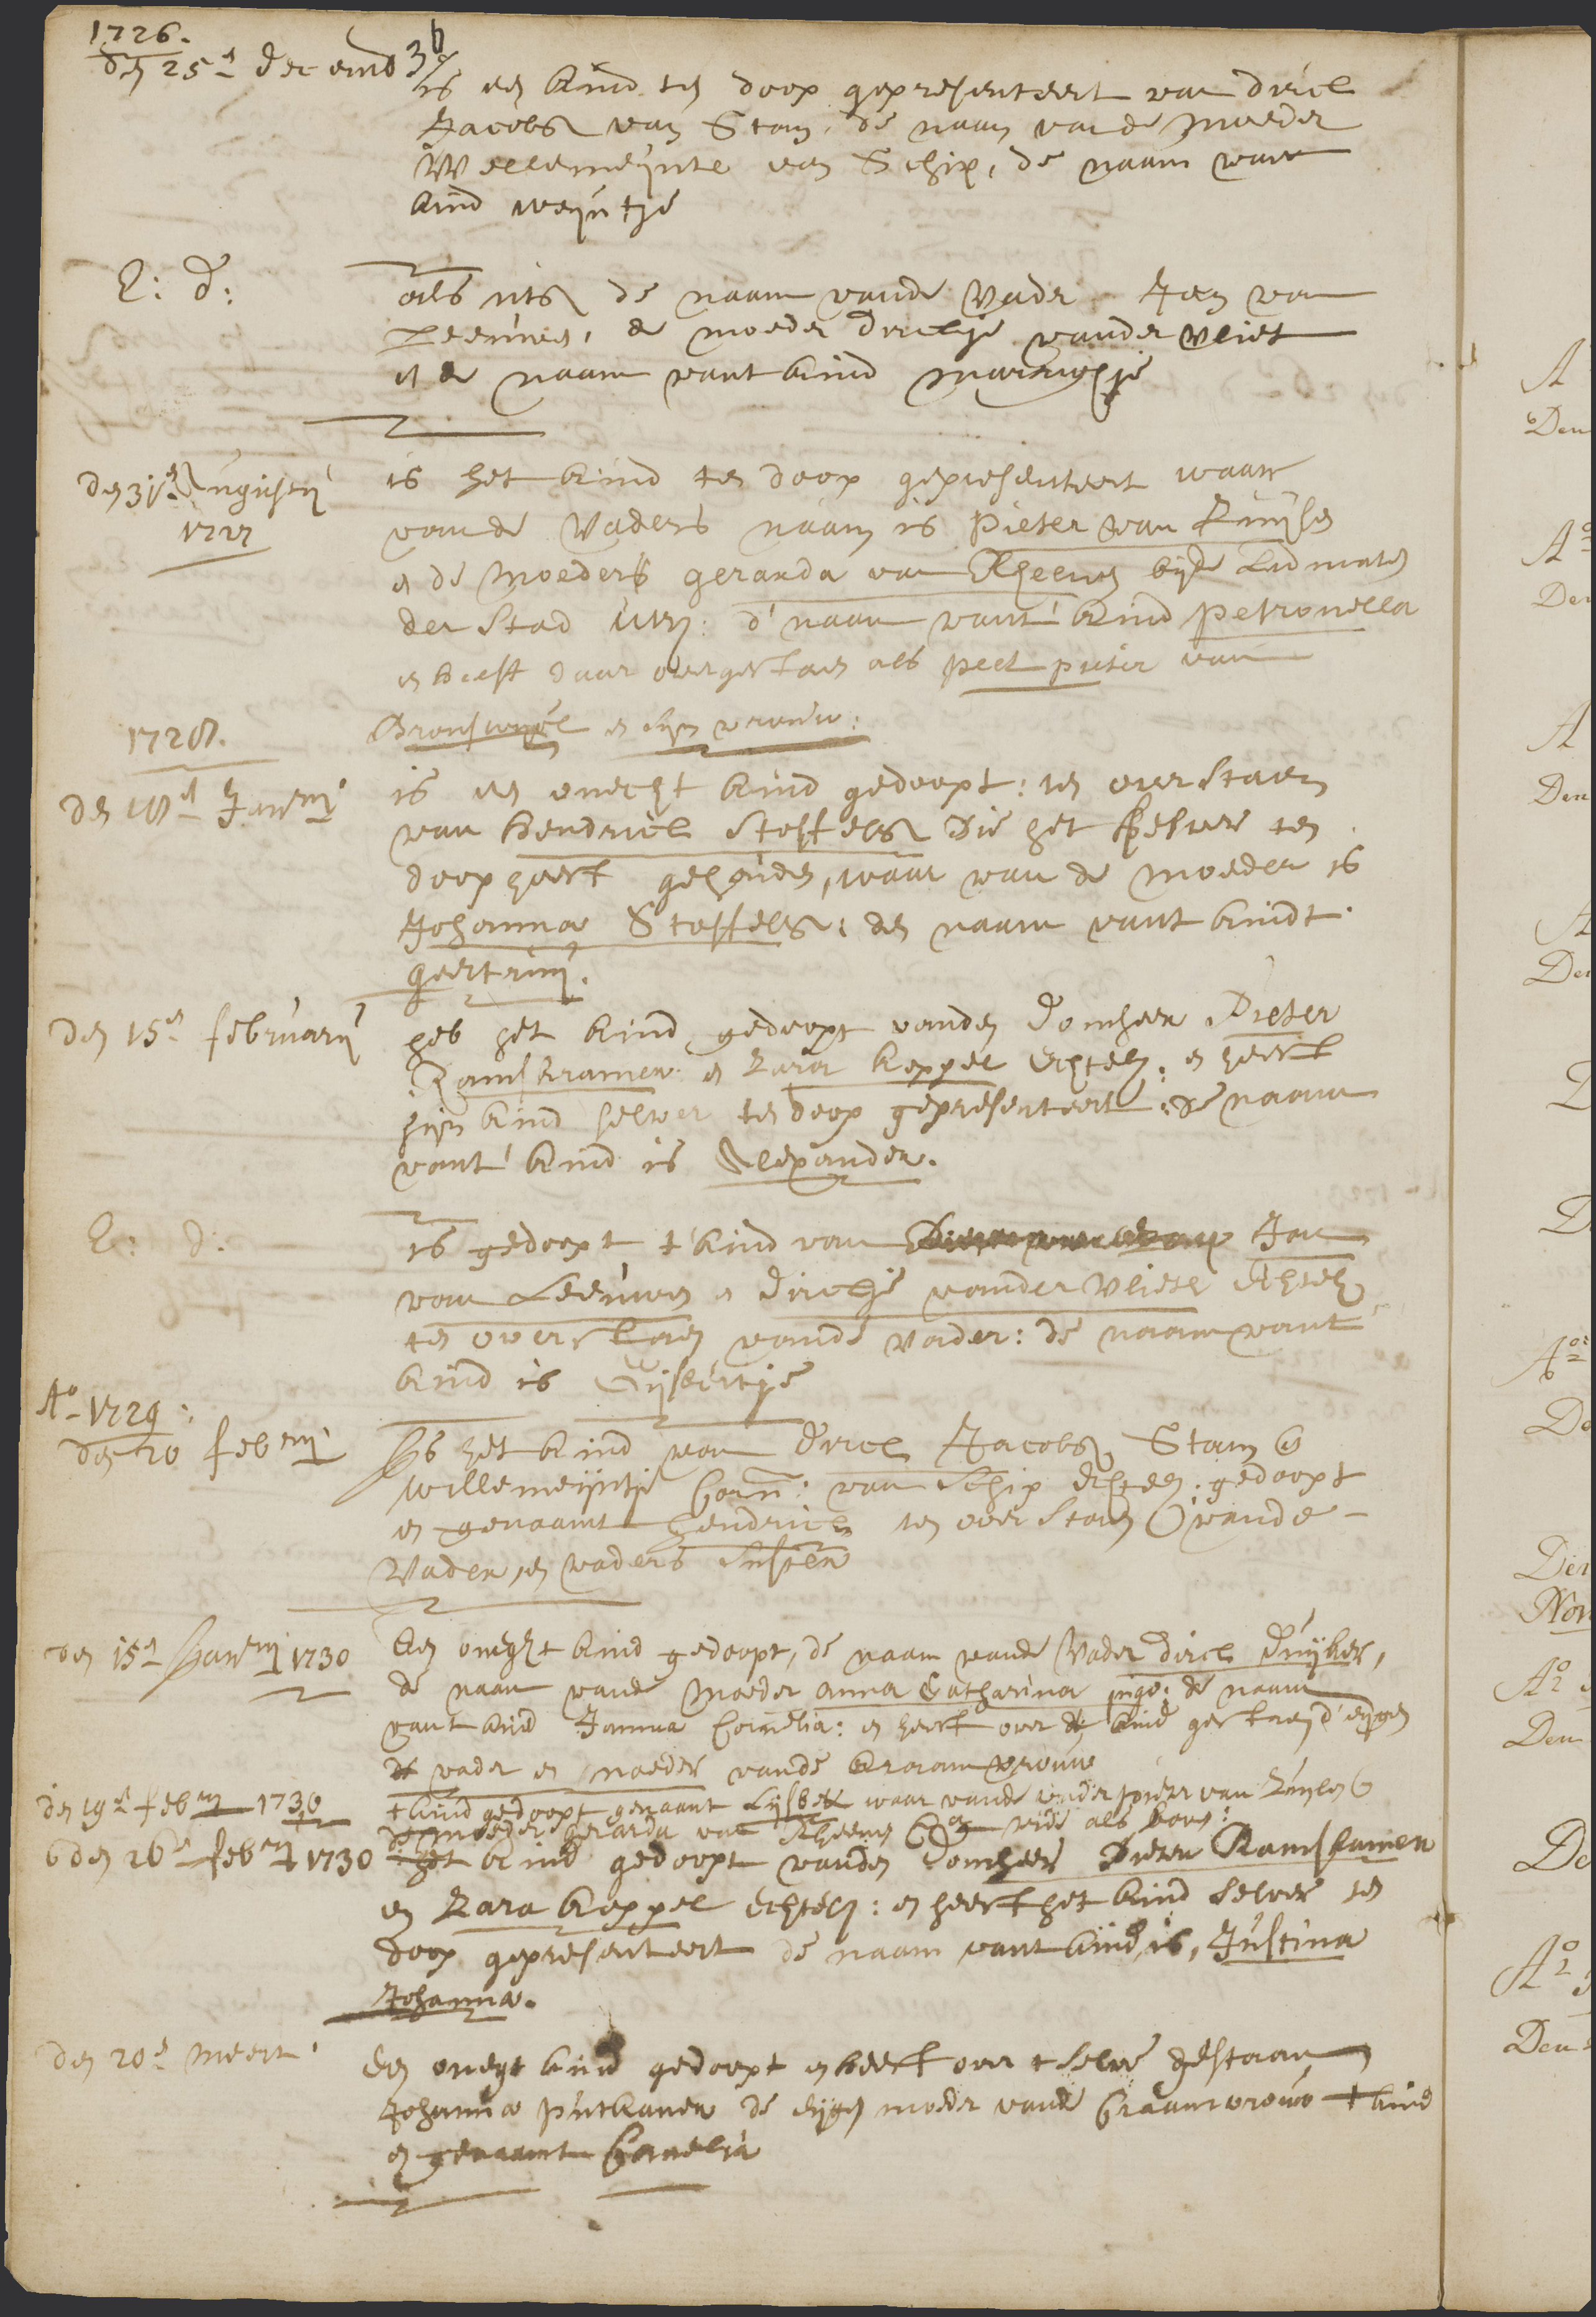 1726.
den 25e decemb 36
is een kind ten doop gepresenteert van dirck
Jacobs van Stam, de naam van de moeder
Willemeijnte van Schip, de naam vant
kind weijntje
E: d:
als uts de naam vande Vader Jan van
Leeuwen, de moeder dirckje vander vliet
en de naam vant kind marrigje
den 31e Augusti
1727
is het kind ten doop gepresenteert waar
van de Vaders naam is Pieter van Ruijsen
en de Moeders geranda van Rheenen bijde Ledmaten
der Stad Utr: d' naam vant kind Petronella
en heeft daar over gestaen als peet pieter van
Bronswyck en sijn vrouw:
1728.
den 18e Janrij
is een onecht kind gedoopt: ten overstaen
van Hendrick Stoffels die het selve ten
doop heeft gehouden, waar van de moeder is
Johanna Stoffels: den naam vant kindt
geertruij.
den 15e februarij
heb het kind gedoopt vanden domheer Dieter
Ramskramer en Zara keppel Echtel: en heeft
sijn kind selver ten doop gepresenteert: de naam
vant kind is Alexander.
E: d:
is gedoopt t kind van Jan
van Leeuwen en dirckje vander vliet Echtel
ten overstaen vande vader: de naam vant
kind is Gijsbertje
Ao 1729:
den 20 febrij
Is het kind van dirck Jacobs Stam en
willemeijntje Corn: van Schip Echtel: gedoopt
en genaamt Hendrick ten overstaen vande
Vader, en vaders suster
den 15e Janrij 1730
Een onegt kind gedoopt, de naam vande Vader dirck Duijker,
de naam vande Moeder anna Catharina de naam
vant kind Janna Cornelia: en heeft over de kind gestaen d' eijgen
vader en moeder vande kraamvrouw
den 19e febrij 1730
t kind gedoopt genaamt Lijsbet waar vande vader pieter van Ruijsen
de moeder Gerarda van Rheenen als boven:
den 26e febrij 1730
het kind gedoopt vanden domheer Dieter Ramskramer
en Zara keppel Echtel: en heeft het kind selver ten
doop gepresenteert de naam vant kind is, Justina
Johanna.
den 20e Meert
Een onegt kind gedoopt en heeft over t selve gestaan
Johanna Putkamer de eijgen moeder vande kraamvrouw t kind
en genaamt Cornelia